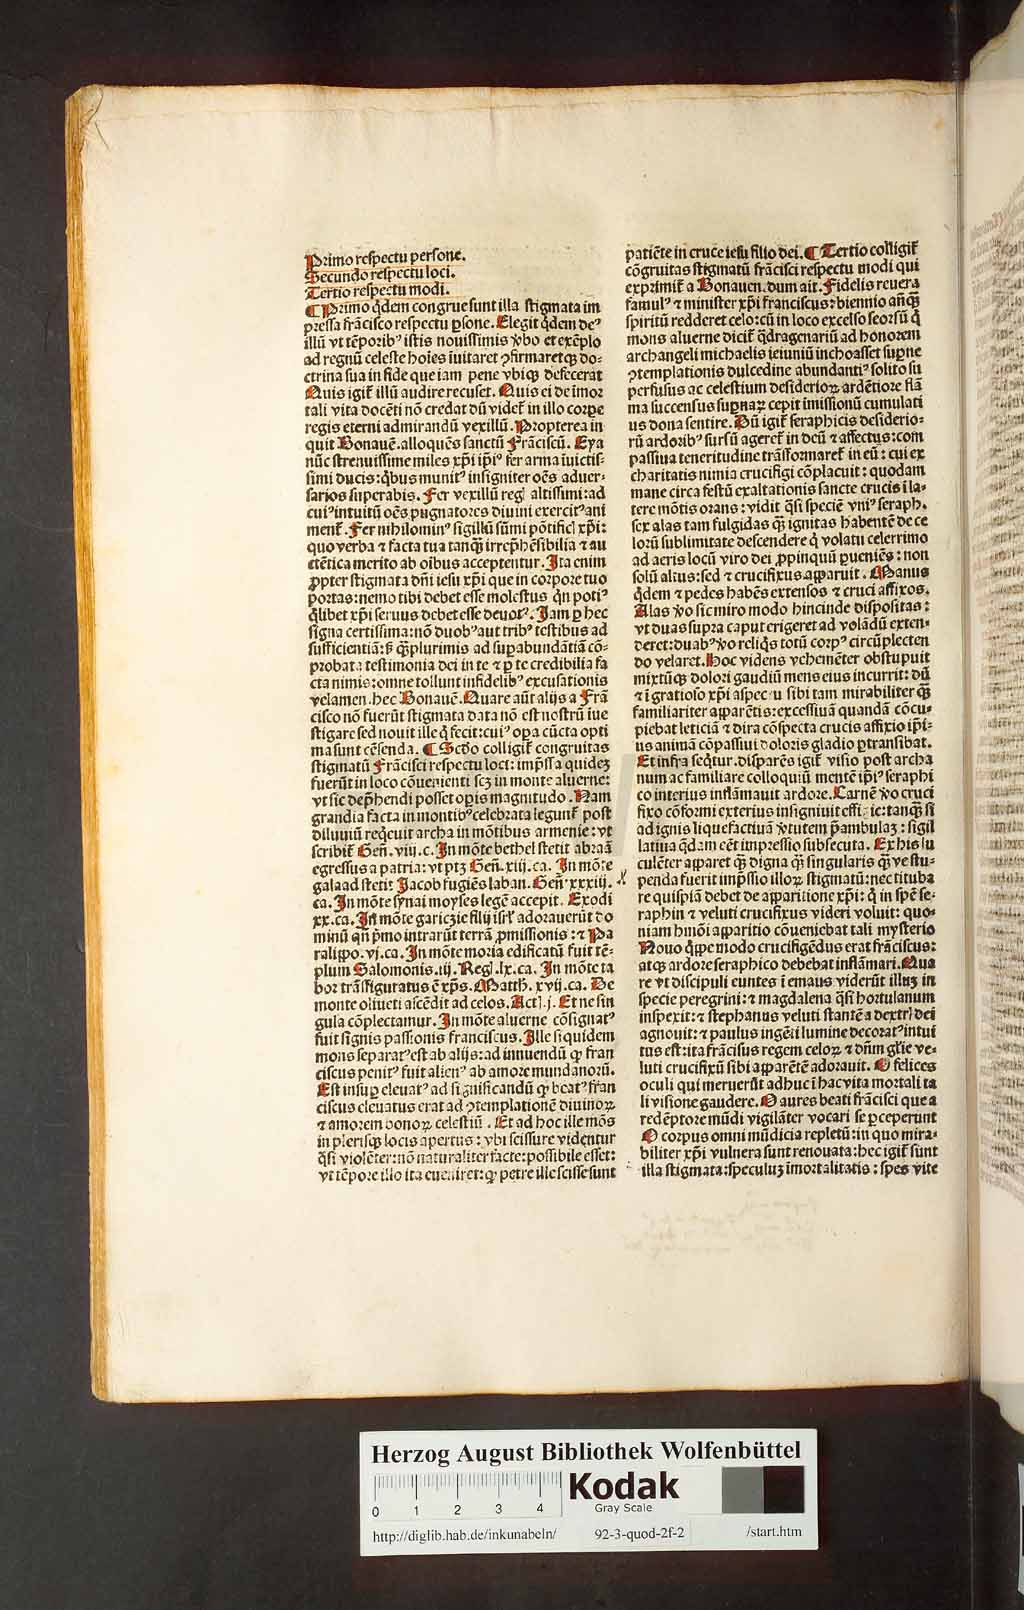 Primo respectu persone.
Secundo respectu loci.
Tertio respectu modi.
¶ Primo qͥdem congrue sunt illa stigmata im
pressa frācisco respectu ꝑsone. Elegit qͥdem deꝰ
illū vt tēporibꝰ istis nouissimis v̓bo et exēplo
ad regnū celeste hoīes īuitaret ꝯfirmaretqꝫ do⸗
ctrina sua in fide que iam pene vbiqꝫ defecerat
Quis igit̉ illū audire recuset. Quis ei de īmor
tali vita docēti nō credat dū videt̉ in illo corꝑe
regis eterni admirandū vexillū. Propterea in
quit Bonauē. alloquēs sanctū Frāciscū. Eya
nūc strenuissime miles xp̄i ip̄iꝰ fer arma īuictis⸗
simi ducis: qͥbus munitꝰ insigniter oēs aduer⸗
sarios superabis. Fer vexillū regꝭ altissimi: ad
cuiꝰ intuitū oēs pugnatores diuini exercitꝰ ani
ment̉. Fer nihilominꝰ sigillū sūmi pōtificꝭ xp̄i:
quo verba ⁊ facta tua tanqꝫ̄ irrep̄hēsibilia ⁊ au
ctētica merito ab oībus acceptentur. Ita enim
ꝓpter stigmata dn̄i iesu xp̄i que in corpore tuo
portas: nemo tibi debet esse molestus qn̄ potiꝰ
qͥlibet xp̄i seruus debet esse deuotꝰ. Jam ꝑ hec
signa certissima: nō duobꝰ aut tribꝰ testibus ad
sufficientiā: sꝫ qꝫ̄plurimis ad suꝑabundātiā cō⸗
probata testimonia dei in te ⁊ ꝑ te credibilia fa
cta nimis: omne tollunt infidelibꝰ excusationis
velamen. hec Bonauē. Quare aūt alijs a Frā
cisco nō fuerūt stigmata data nō est nostrū īue
stigare sed nouit ille qͥ fecit: cuiꝰ oꝑa cūcta opti
ma sunt cēsenda. ¶ Scd̄o colligit̉ congruitas
stigmatū Frācisci respectu loci: imp̄ssa quidez
fuerūt in loco cōuenienti scꝫ in monte aluerne:
vt sic dep̄hendi posset oꝑis magnitudo. Nam
grandia facta in montibꝰ celebrata legunt̉ post
diluuiū reqͥeuit archa in mōtibus armenie: vt
scribit̉ Gen̄. viij. c. In mōte bethel stetit abraā
egressus a patria: vt ptꝫ Gen̄. xiij. ca. In mōte
galaad stetit Jacob fugiēs laban. Gen̄ xxxiij.
ca. In mōte synai moyses legē accepit. Exodi
xx. ca. In mōte garizzie filij isrl̓ adorauerūt do
minū qn̄ p̄mo intrarūt terrā ꝓmissionis: ⁊ Pa
ralipo. vj. ca. In mōte moria edificatū fuit tē⸗
plum Salomonis. iij. Regꝭ. ix. ca. In mōte ta
bor trāsfiguratus ē xp̄s. Matth. xvij. ca. De
monte oliueti ascēdit ad celos. Actꝭ. j. Et ne sin
gula cōplectamur. In mōte aluerne cōsignatꝰ
fuit signis passionis franciscus. Ille siquidem
mons separatꝰ est ab alijs: ad innuendū ꝙ fran
ciscus penitꝰ fuit alienꝰ ab amore mundanorū.
Est insuꝑ eleuatꝰ ad significandū ꝙ beatꝰ fran
ciscus eleuatus erat ad ꝯtemplationē diuinoꝝ
⁊ amorem bonoꝝ celestiū. Et ad hoc ille mōs
in plerisqꝫ locis apertus: vbi scissure videntur
qͣsi violēter: nō naturaliter facte: possibile esset:
vt tēpore illo ita eueniret: ꝙ petre ille scisse sunt
patiēte in cruce iesu filio dei. ¶ Tertio colligit̉
cōgruitas stigmatū frācisci respectu modi qui
exprimit̉ a Bonauen. dum ait. Fidelis reuera
famulꝰ ⁊ minister xp̄i franciscus: biennio anqꝫ̄
spiritū redderet celo: cū in loco excelso seorsū qͥ
mons aluerne dicit̉ qͣdragenariū ad honorem
archangeli michaelis ieiuniū inchoasset suꝑne
ꝯtemplationis dulcedine abundantiꝰ solito su
perfusus ac celestium desiderioꝝ ardētiore flā
ma succensus suꝑnaꝝ cepit imissionū cumulati
us dona sentire. Dū igit̉ seraphicis desiderio⸗
rū ardoribꝰ sursū ageret̉ in deū ⁊ affectus: com
passiua teneritudine trāsformaret̉ in eū: cui ex
charitatis nimia crucifigi cōplacuit: quodam
mane circa festū exaltationis sancte crucis ī la⸗
tere mōtis orans: vidit qͣsi speciē vniꝰ seraph.
sex alas tam fulgidas qꝫ̄ ignitas habentē de ce
lorū sublimitate descendere qͥ volatu celerrimo
ad aeris locū viro dei ꝓpinquū ꝑueniēs: non
solū alatus: sed ⁊ crucifixus apparuit. Manus
qͥdem ⁊ pedes habēs extensos ⁊ cruci affixos.
Alas v̓o sic miro modo hincinde dispositas:
vt duas supra caput erigeret ad volādū exten⸗
deret: duabꝰ v̓o reliqͥs totū corpꝰ circūplecten
do velaret. Hoc videns vehemēter obstupuit
mixtūqꝫ dolori gaudiū mens eius incurrit: dū
⁊ ī gratioso xp̄i aspectu sibi tam mirabiliter qꝫ̄
familiariter apparētis: excessiuā quandā cōcu⸗
piebat leticiā ⁊ dira cōspecta crucis affixio ip̄i⸗
us animā cōpassiui doloris gladio ꝑtransibat.
Et infra seqͥtur. disparēs igit̉ visio post archa
num ac familiare colloquiū mentē ip̄iꝰ seraphi
co interius inflāmauit ardore. Carnē v̓o cruci
fixo cōformi exterius insigniuit effigie: tanqꝫ̄ si
ad ignis liquefactiuā v̓tutem p̄ambulaꝫ: sigil
latiua qͣdam eēt impressio subsecuta. Ex his lu
culēter apparet qꝫ̄ digna qꝫ̄ singularis qꝫ̄ ve stu⸗
penda fuerit imp̄ssio illoꝝ stigmatū: nec tituba
re quispiā debet de apparitione xp̄i: qͥ in sp̄e se⸗
raphin ⁊ veluti crucifixus videri voluit: quo⸗
niam hmōi apparitio cōueniebat tali mysterio
Nouo qͥppe modo crucifigēdus erat frāciscus:
atqꝫ ardore seraphico debebat inflāmari. Qua
re vt discipuli euntes ī emaus viderūt illuꝫ in
specie peregrini: ⁊ magdalena qͣsi hortulanum
inspexit: ⁊ stephanus veluti stantē a dextrꝭ dei
agnouit: ⁊ paulus ingēti lumine decoratꝰ intui
tus est: ita frāciscus regem celoꝝ ⁊ dn̄m gl̓ie ve⸗
luti crucifixū sibi apparētē adorauit. O felices
oculi qui meruerūt adhuc ī hac vita mortali ta
li visione gaudere. O aures beati frācisci que a
redēptore mūdi vigilāter vocari se ꝑceperunt
O corpus omni mūdicia repletū: in quo mira⸗
biliter xp̄i vulnera sunt renouata: hec igit̉ sunt
illa stigmata: speculuꝫ īmortalitatis: spes vite
Herzog August Bibliothek Wolfenbüttel
0 1 2 3 4
Kodak
Gray Scale
http://diglib.hab.de/inkunabeln/ 92-3-quod-2f-2 /start.htm